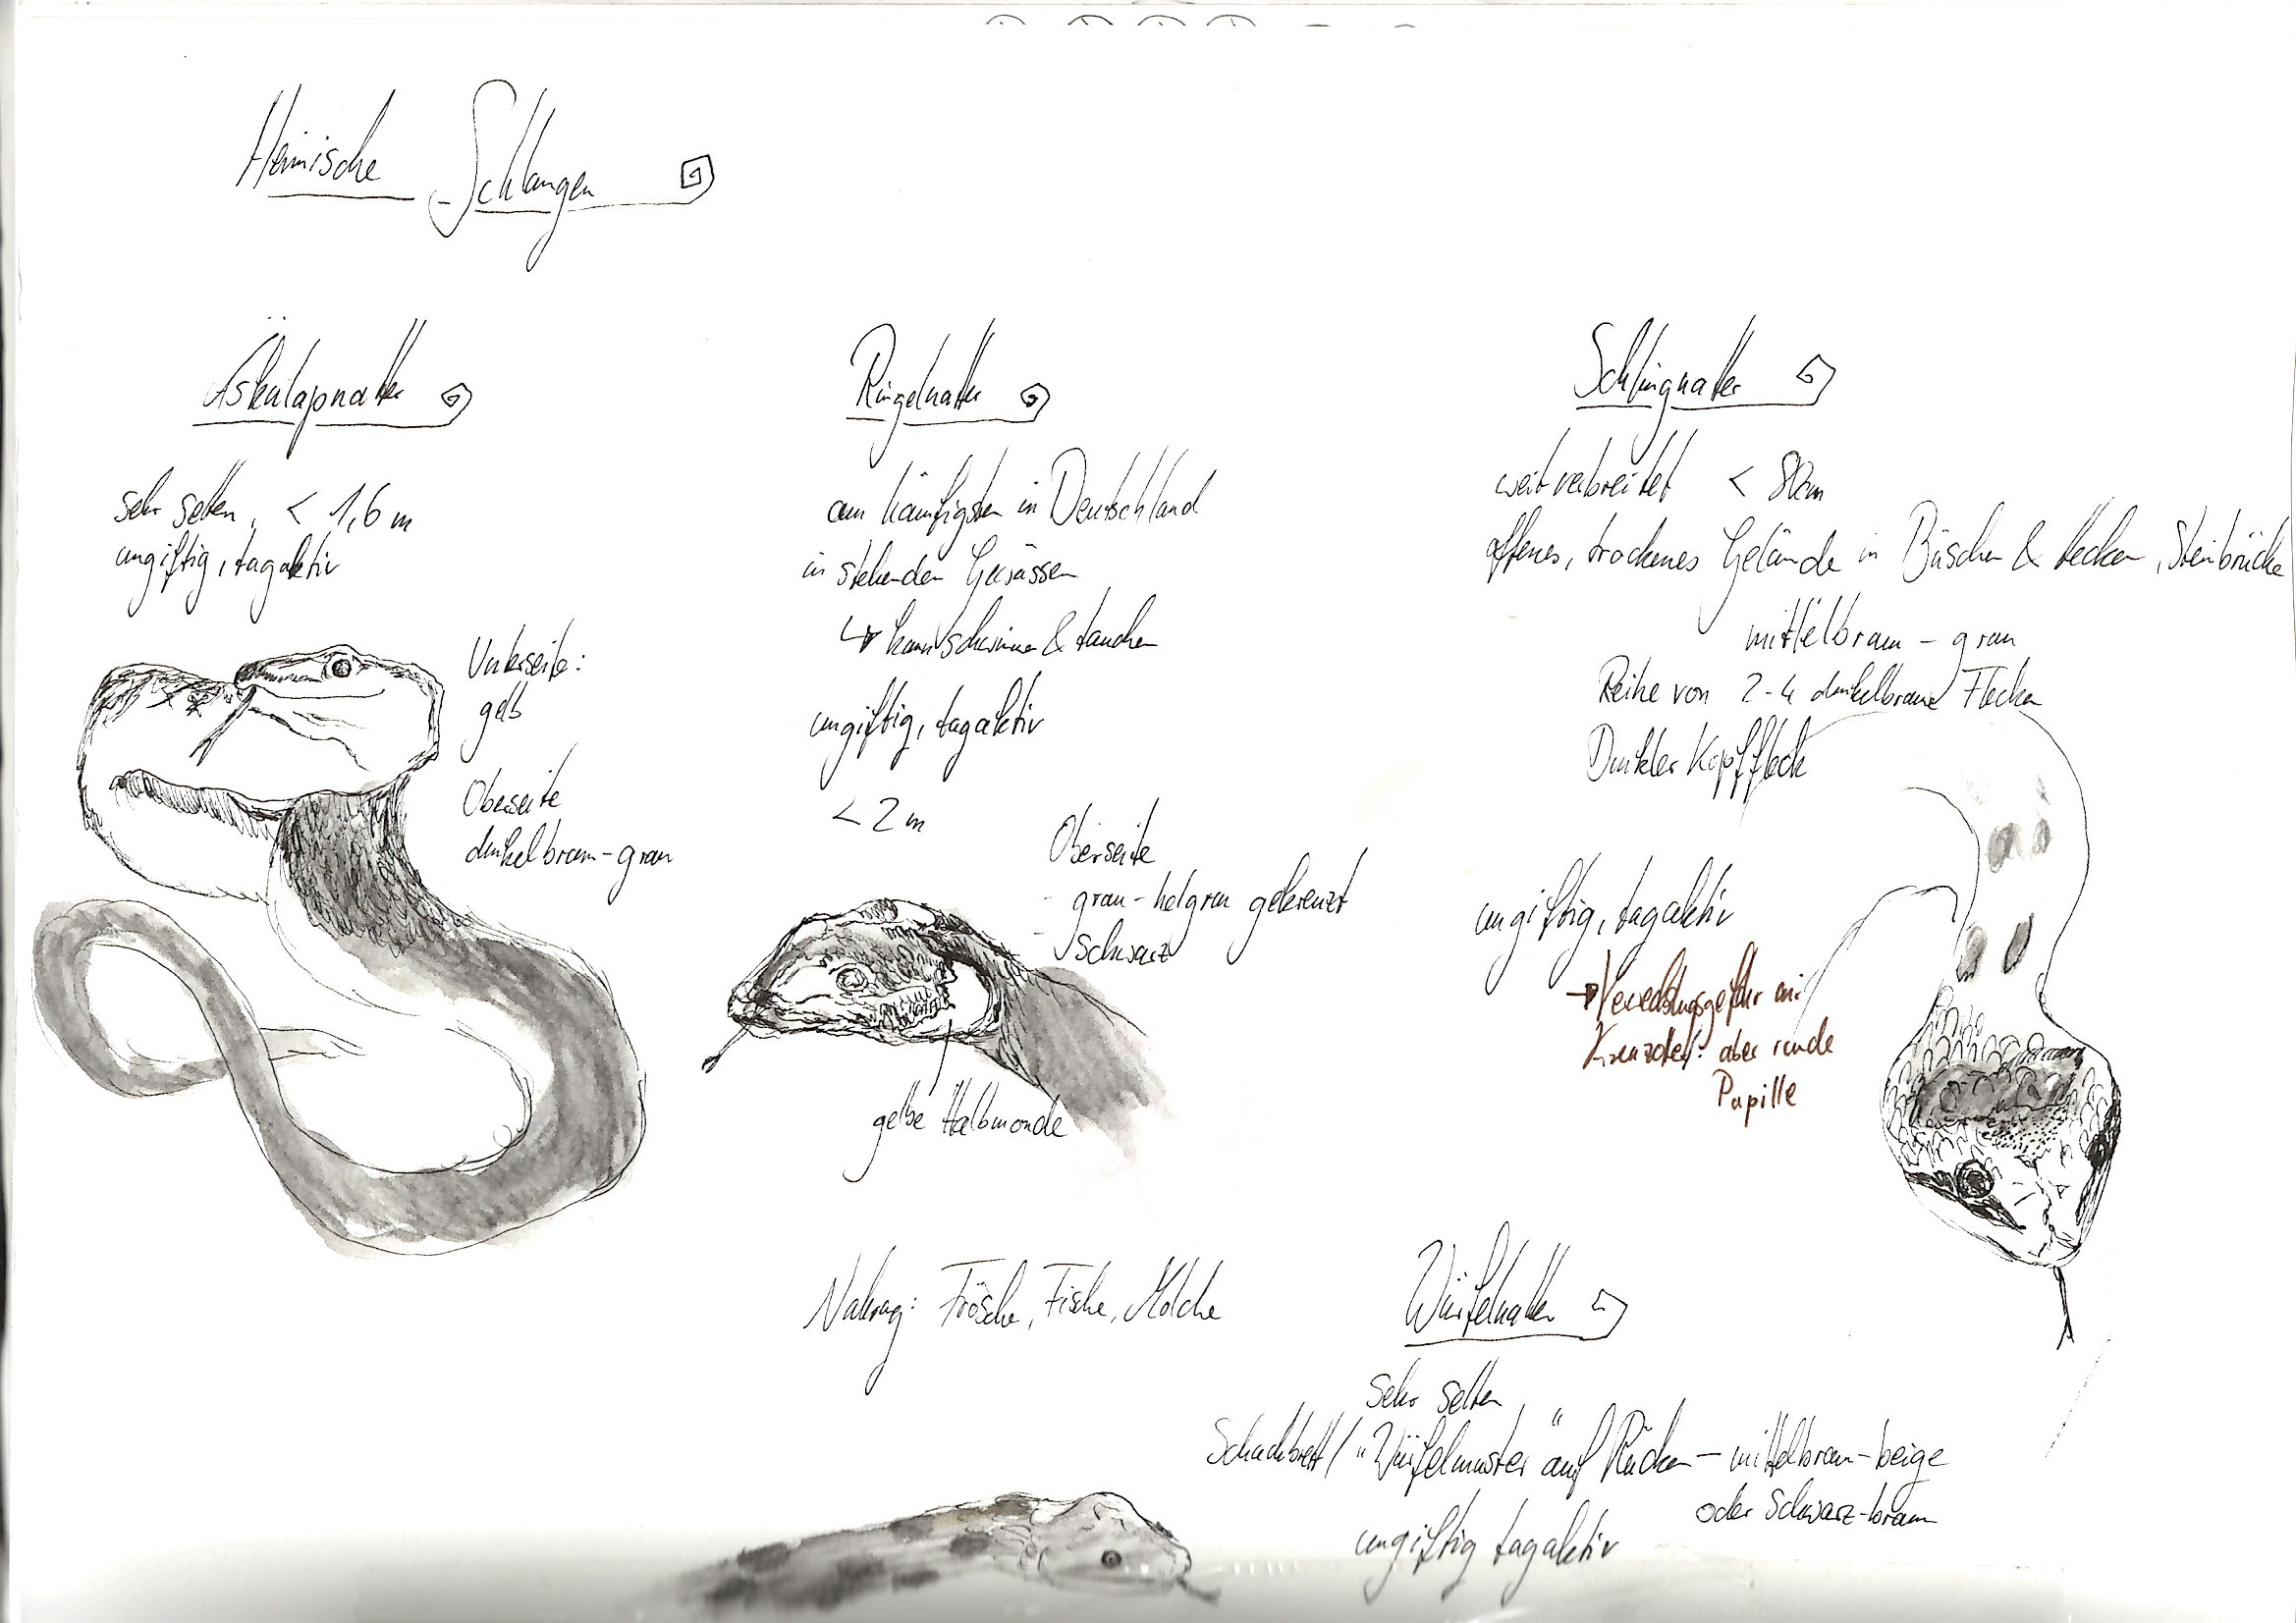 Heimische Schlangen
Äskulapnatter
sehr selten, < 1,6 m
ungiftig, tagaktiv
Unterseite:
gelb
Oberseite
dunkelbraun-grau
Ringelnatter
am häufigsten in Deutschland
in stehenden Gewässen
↳ kann schwimmen & tauchen
ungiftig, tagaktiv
< 2 m
Oberseite
- grau-helgrau gekreuzt
- schwarz
gelbe Halbmonde
Nahrung: Frösche, Fische, Molche
Schlingnatter
weit verbreitet < 80cm
offenes, trockenes Gelände in Büschen & Hecken, Steinbrüche
mittelbraun - grau
Reihe von 2-4 dunkelbraune Flecken
Dunkler Kopffleck
ungiftig, tagaktiv
→ Verwechslungsgefahr mit
Kreuzotter: aber runde
Pupille
Würfelnatter
sehr selten,
Schachbrett/"Würfelmuster" auf Rücken - mittelbraun-beige
oder Schwarz-braun
ungiftig tagaktiv